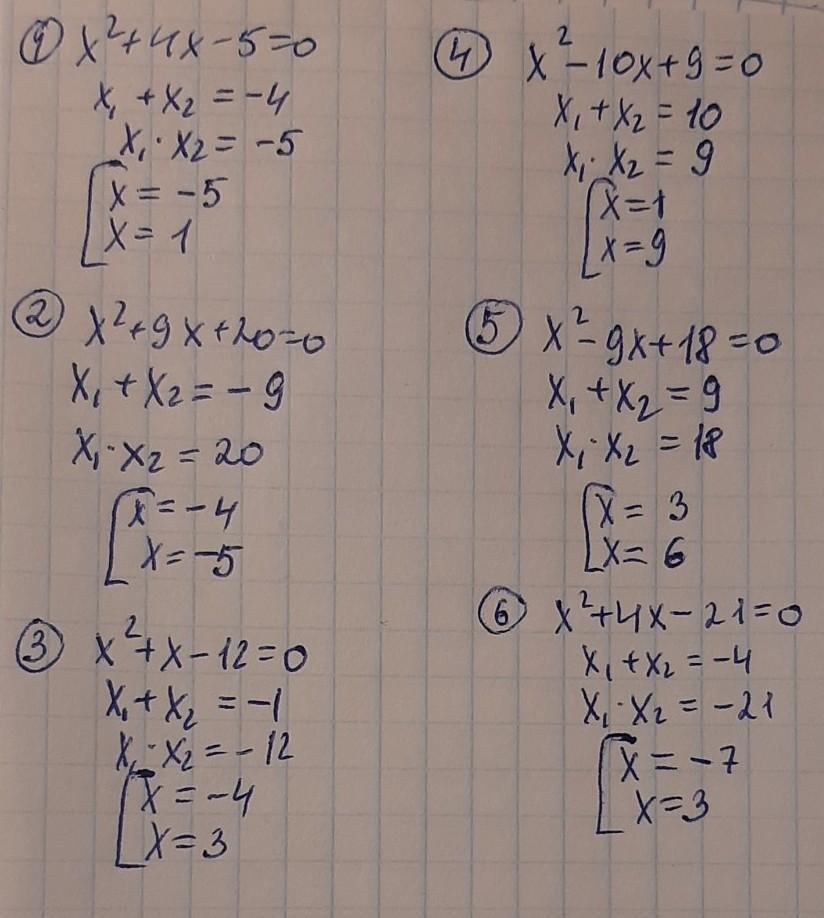 ① x²+4x-5=0
x₁ + x₂ = -4
x₁ · x₂ = -5
[ x = -5
x = 1
② x²+9x+20=0
x₁ + x₂ = -9
x₁ · x₂ = 20
[ x = -4
x = -5
③ x²+x-12=0
x₁ + x₂ = -1
x₁ · x₂ = -12
[ x = -4
x = 3
④ x²-10x+9=0
x₁ + x₂ = 10
x₁ · x₂ = 9
[ x = 1
x = 9
⑤ x²-9x+18=0
x₁ + x₂ = 9
x₁ · x₂ = 18
[ x = 3
x = 6
⑥ x²+4x-21=0
x₁ + x₂ = -4
x₁ · x₂ = -21
[ x = -7
x = 3